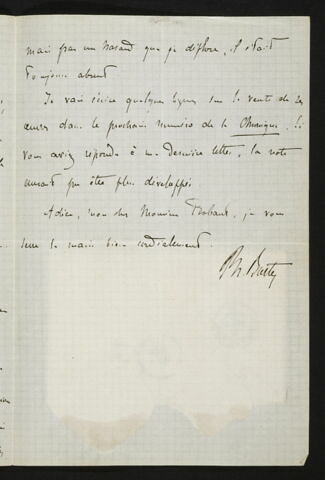 mais par un hasard que je déplore, il était
toujours absent
Je vais écrire quelques lignes sur la vente de ses
œuvres dans le prochain numéro de la Chronique. Si
vous aviez répondu à ma dernière lettre, la note
aurait pu être plus développée
Adieu, mon cher Monsieur Robaut, je vous
serre la main bien cordialement.
Ph. Burty